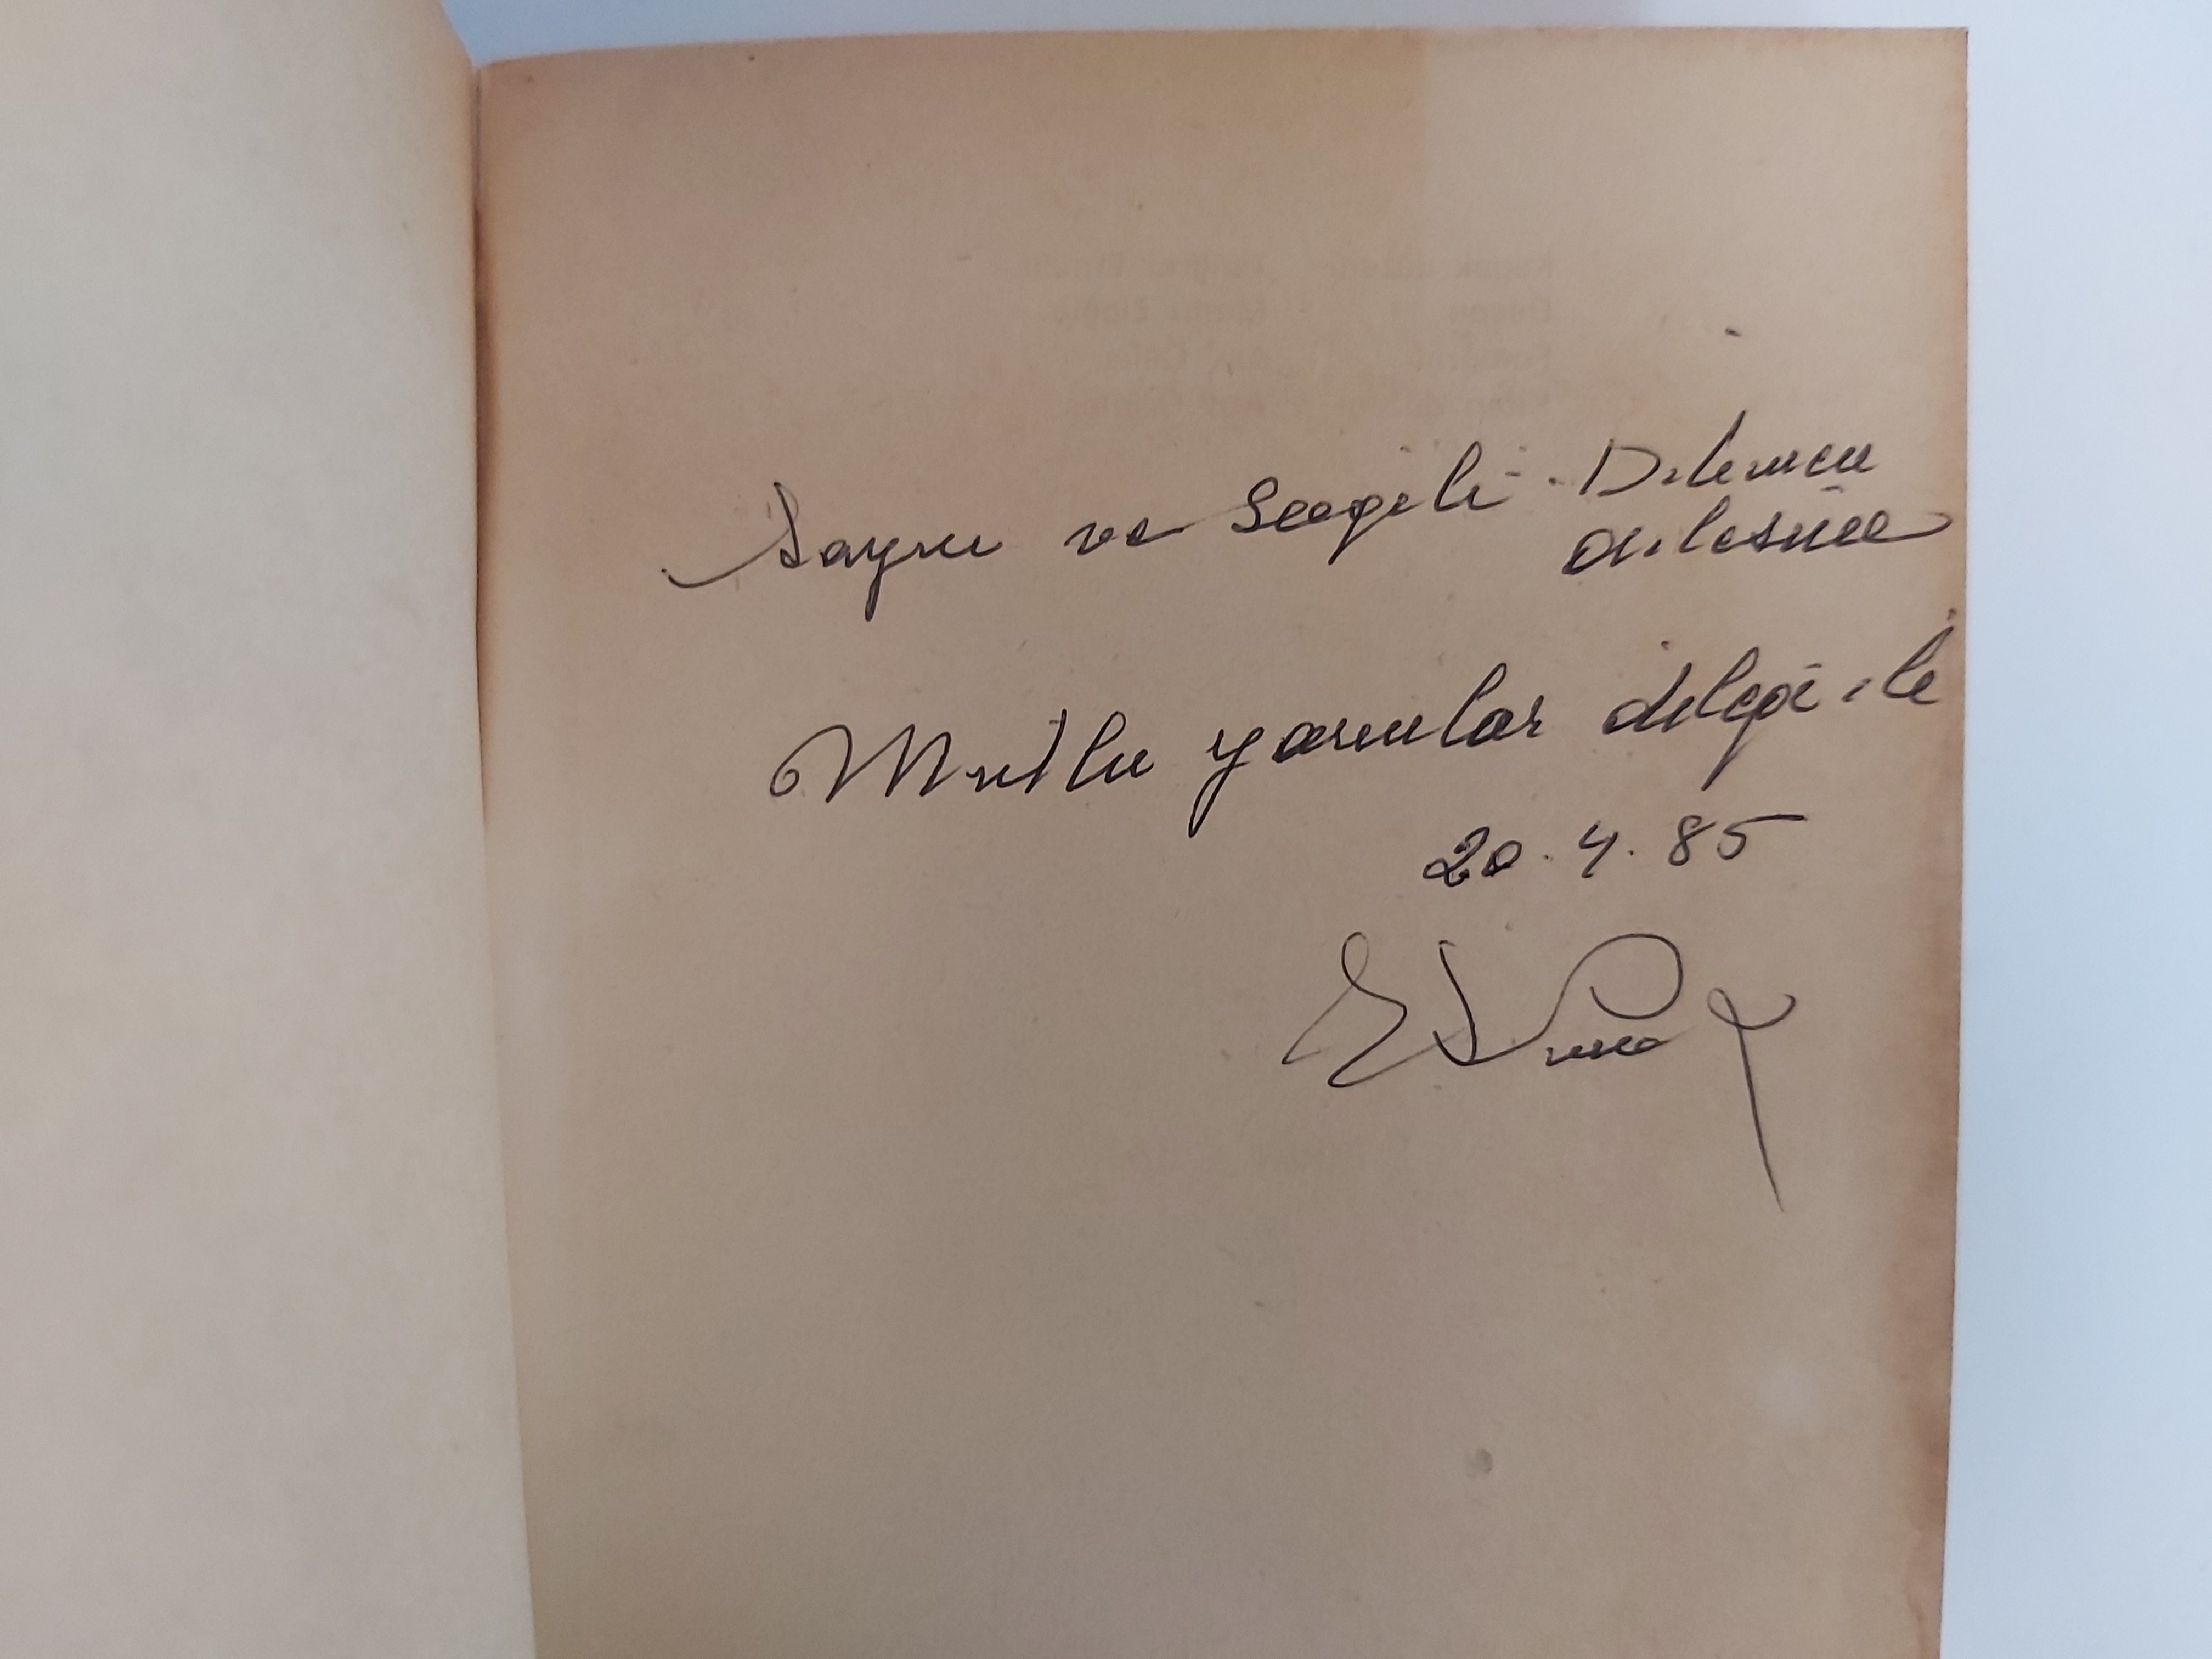 Sayın ve Sevgili Dilemen
ailesine
Mutlu yarınlar dileği ile
20.4.85